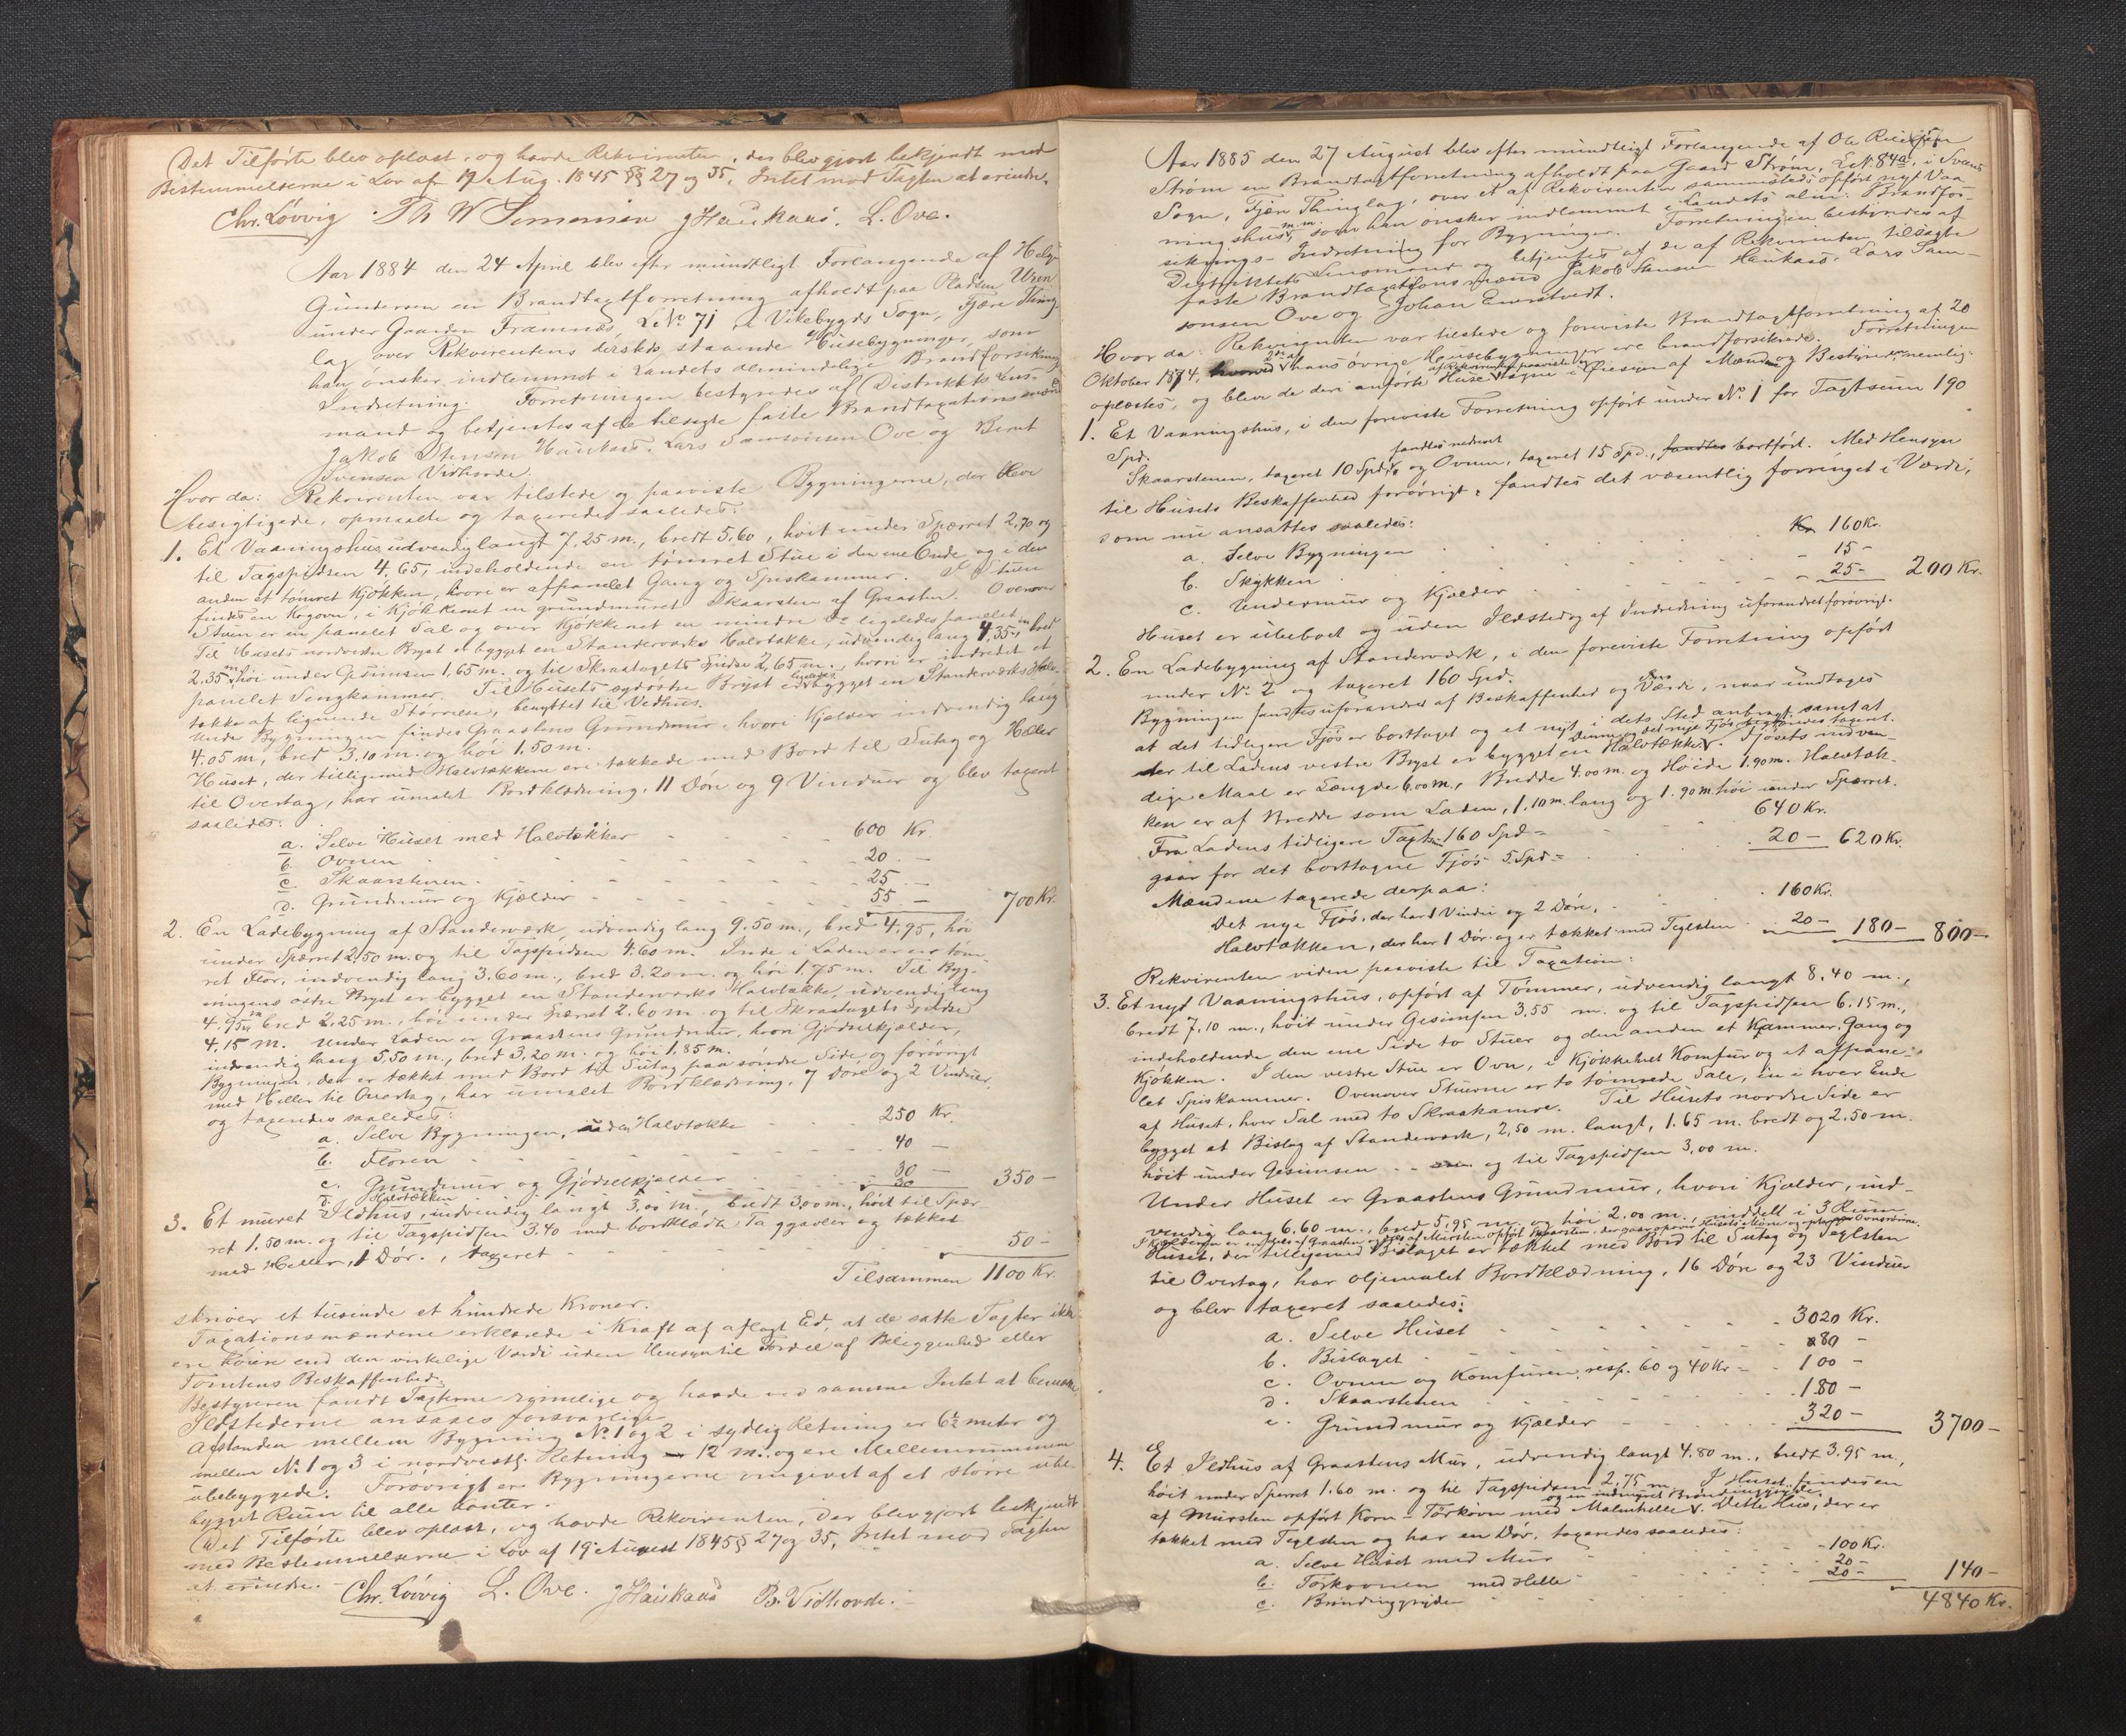 Det Tilførte blev oplæst, og havde Rekvirenten, der blev gjort bekjendt med
Bestemmelserne i Lov af 19 Aug. 1845 §§ 27 og 35, Intet mod Taxten at erindre.
Chr. Løvvig Th W Simonsen J Haukaas. L. Ove.
Aar 1884 den 24 April blev efter mundtligt Forlangende af Helge
Gundersen en Brandtaxtforretning afholdt paa Pladsen Uren
under Gaarden Framnæs, L.No 71 i Vikebygds Sogn, Fjære Thing-
lag over Rekvirentens dersteds staaende Husebygninger, som
han ønsker indlemmet i Landets almindelige Brandforsikrings
Indretning. Forretningen bestyredes af Distriktets Lens-
mand og betjentes af de tilsagte faste Brandtaxationsmænd
Jakob Stensen Haukaas, Lars Samsonsen Ove og Bernt
Svensen Vidhovde.
Hvor da: Rekvirenten var tilstede og paaviste Bygningerne, der bleve
besigtigede, opmaalte og taxerede saaledes:
1. Et Vaaningshus, udvendig langt 7,25 m., bredt 5,60, høit under Spærret 2,70 og
til Tagspidsen 4,65, indeholdende en tømret Stue i den ene Ende og i den
anden et tømret Kjøkken, hvori er afpanelet Gang og Spiskammer. I Stuen
findes en Kogovn, i Kjøkkenet en grundmuret Skaarsten af Graasten. Ovenover
Stuen er en panelet Sal og over Kjøkkenet en mindre do ligeledes panelet.
Til Husets nordvestre Bryst er bygget en Standerværks Halvtække, udvendig lang 4,35 m, bred
2,35 m, høi under Gesimsen 1,65 m. og til Skraatagets Spidse 2,65 m., hvori er indredet et
panelet Sengkammer. Til Husets sydøstre Bryst er ligeledes bygget en Standerværks Halv-
tække af lignende Størrelse, benyttet til Vedhus.
Under Bygningen findes Graastens Grundmur, hvori Kjelder indvendig lang
4.05 m, bred 3,10 m. og høi 1.50 m.
Huset, der tilligemed Halvtækkerne ere tækkede med Bord til Sutag og Heller
til Overtag, har umalet Bordklædning, 11 Døre og 9 Vinduer og blev taxeret
saaledes:
a. Selve Huset med Halvtækker 600 Kr.
b. Ovnen 20 —
c. Skaarstenen 25 —
d. Grundmur og Kjælder 55 — 700 Kr.
2. En Ladebygning af Standerværk, udvendig lang 9.50 m., bred 4.95, høi
under Spærret 2,50 m. og til Tagspidsen 4.60 m. Inde i Laden er en tøm-
ret Flor, indvendig lang 3.60 m., bred 3.20 m. og høi 1.75 m. Til Byg-
ningens østre Bryst er bygget en Standerværks Halvtække, udvendig lang
4.95 m bred 2,25 m., høi under Spærret 2.60 m. og til Skraatagets Spidse
4,15 m. Under Laden er Graastens Grundmur, hvori Gjødselkjælder,
indvendig lang 5,50 m., bred 3,20 m. og høi 1,85 m.
Bygningen, der er tækket med Bord til Sutag paa søndre Side, og forøvrigt
med Heller til Overtag, har umalet Bordklædning, 7 Døre og 2 Vinduer,
og taxeredes saaledes:
a. Selve Bygningen, uden Halvtække 250 Kr.
b. Floren 40 —
c. Grundmur og Gjødselkjælder 30 —
d. Halvtækken 30 350 —
3. Et muret Ildhus, indvendig langt 3,00 m., bredt 3,00 m., høit til Spær-
ret 1.50 m. og til Tagspidsen 3.40 med bordklædte Taggavler og tækket
med Heller, 1 Dør, taxeret 50 —
Tilsammen 1100 Kr.
skriver et tusinde et hundrede Kroner.
Taxationsmændene erklærede i Kraft af aflagt Ed, at de satte Taxter ikke
ere høiere end den virkelige Værdi uden Hensyn til Fordel af Beliggenhed eller
Tomtens Beskaffenhed.
Bestyreren fandt Taxterne rimelige og havde ved samme Intet at bemærke
Ildstederne ansaaes forsvarlige.
Afstanden mellem Bygning No 1 og 2 i sydlig Retning er 6½ meter og
mellem No 1 og 3 i nordvestl. Retning 12 m. og ere Mellemrummene
ubebyggede. Forøvrigt er Bygningerne omgivet af et større ube-
bygget Rum til alle Kanter.
Det Tilførte blev oplæst, og havde Rekvirenten, der blev gjort bekjendt
med Bestemmelserne i Lov af 19 August 1845 § 27 og 35, Intet mod Taxten
at erindre.
Chr. Løvvig L. Ove. J Haukaas B. Vidhovde.
Aar 1885 den 27 August blev efter mundtligt Forlangende af Ole
Strøm en Brandtaxtforretning afholdt paa Gaard Strøm, L.No. 84a, i Sveens
Sogn, Fjære Thinglag, over et af Rekvirenten sammesteds opført nyt Vaa-
ningshus, m.m. som han ønsker indlemmet i Landets alm. Brandfor-
sikrings-Indretning for Bygninger. Forretningen bestyredes af
Distriktets Lensmand og betjentes af de af Rekvirenten tilsagte
faste Brandtaxationsmænd Jakob Stensen Haukaas, Lars Sam-
sonsen Ove og Johan Emstvedt.
Hvor da: Rekvirenten var tilstede og foreviste Brandtaxtforretning af 20
Oktober 1874, hans øvrige Husebygninger ere brandforsikrede. Forretningen
oplæstes, og bleve de deri anførte Huse af Rekvirenten paaviste og tagne i Øiesyn af Mændene og Bestyreren, nemlig:
1. Et Vaaningshus, i den foreviste Forretning opført under No. 1 for Taxtsum 190
Spd.
Skaarstenen, taxeret 10 Spd. fandtes nedrevet og Ovnen, taxeret 15 Spd., fandtes bortført. Med Hensyn
til Husets Beskaffenhed forøvrigt, fandtes det væsentlig forringet i Værdi,
som nu ansattes saaledes:
a. Selve Bygningen Kr 160 Kr.
b. Skykken - 15 -
c. Undermur og Kjælder - 25 - 200 Kr.
Huset er ubeboet og uden Ildsted og af Indredning uforandret forøvrigt.
2. En Ladebygning af Standerværk, i den foreviste Forretning opført
under No 2 og taxeret 160 Spd.
Bygningen fandtes uforandret af Beskaffenhed og dens Værdi, naar undtages
at det tidligere Fjøs er borttaget og et nyt i dets Sted anbragt, samt at
der til Ladens vestre Bryst er bygget en Halvtække. Denne og det nye Fjøs begjæredes taxeret. Fjøsets udven-
dige Maal er Længde 6,00 m., Bredde 4.00 m. og Høide 1.90 m. Halvtæk-
ken er af Bredde som Laden, 1.10 m. lang og 1.90 m. høi under Spærret.
Fra Ladens tidligere Taxtsum 160 Spd = 640 Kr.
gaar for det borttagne Fjøs 5 Spd = 20 — 620 Kr.
Mændene taxerede derpaa:
Det nye Fjøs, der har 1 Vindu og 2 Døre, 160 Kr.
Halvtækken, der har 1 Dør og er tækket med Teglsten 20 — 180 — 800 —
Rekvirenten viden paaviste til Taxation:
3. Et nyt Vaaningshus, opført af Tømmer, udvendig langt 8.40 m.,
bredt 7.10 m., høit under Gesimsen 3,55 m. og til Tagspidsen 6.15 m.,
indeholdende den ene Side to Stuer og den anden et Kammer, Gang og
Kjøkken. I den vestre Stue er Ovn, i Kjøkkenet Komfur og et afpane-
let Spiskammer. Ovenover Stuerne er to tømrede Sale, en i hver Ende
af Huset, hver Sal med to Skraakamre. Til Husets nordre Side er
bygget et Bislag af Standerværk, 2,50 m. langt, 1.65 m. bredt og 2.50 m.
høit under Gesimsen og til Tagspidsen 3,00 m.
Under Huset er Graastens Grundmur, hvori Kjælder, ind-
vendig lang 6.60 m., bred 5,95 m. og høi 2.00 m., inddelt i 3 Rum.
Huset, der tilligemed Bislaget er tækket med Bord til Sutag og Teglsten
til Overtag, har oljemalet Bordklædning, 16 Døre og 23 Vinduer
og blev taxeret saaledes:
a. Selve Huset 3020 Kr.
b. Bislaget 80 —
c. Ovnen og Komfuren, resp. 60 og 40 Kr = 100 —
d. Skaarstenen 180 —
e. Grundmur og Kjælder 320 — 3700 —
4. Et Ildhus af Graastens Mur, udvendig langt 4.80 m., bredt 3.95 m.,
høit under Sperret 1.60 m. og til Tagspidsen 2,75 m. I Huset findes en
af Mursten opført Korn-Tørkovn med Malmhelle og en indmuret Brændinggryde. Dette Hus, der er
tækket med Teglsten og har en Dør, taxeredes saaledes:
a. Selve Huset med Mur 100 Kr.
b. Tørkovnen med Helle 20 —
c. Brændinggryden 20 — 140 —
4840 Kr.